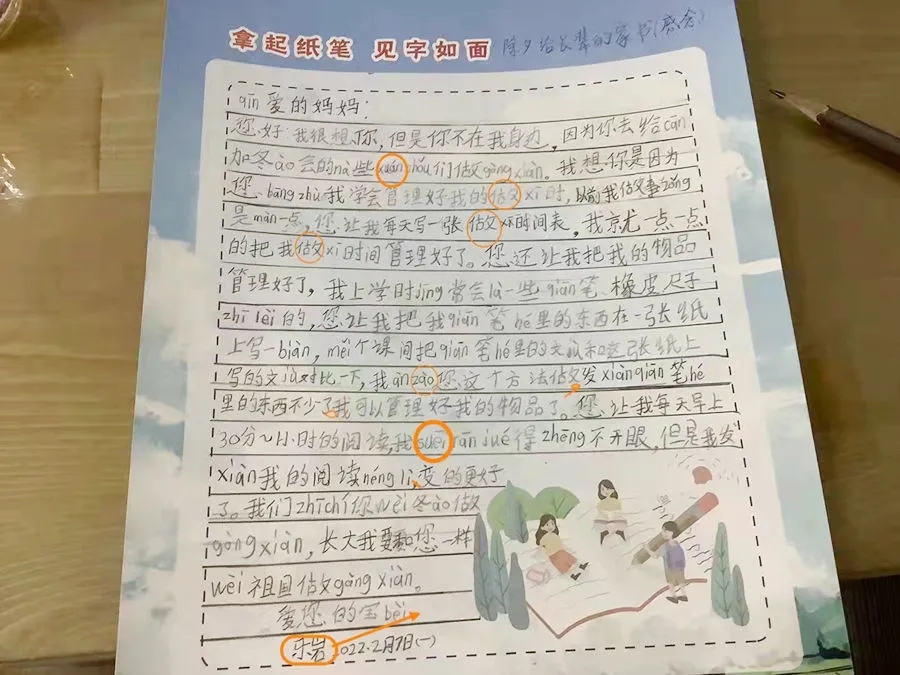 拿起纸笔 见字如面
除夕给长辈的家书(感念)
qīn爱的妈妈：
您好：我很想你，但是你不在我身边，因为你去给cān
加冬ào会的nà些xuǎn shǒu们做gòng xiàn。我想你是因为
您 bāng zhù我学会管理好我的做xī时，以前我做事zǒng
是màn一点，您让我每天写一张做xī时间表，我就一点一点
的把我做xī时间管理好了。您还让我把我的物品
管理好了，我上学时jīng常会là一些qiān笔、橡皮尺子
zhī lèi的，您让我把我qiān笔hé里的东西在一张纸
上写一biàn，měi个课间把qiān笔hé里的文jù和这张纸上
写的文jù对比一下，我àn zào您这个方法做发xiàn qiān笔hé
里的东西不少了我可以管理好我的物品了。您让我每天早上
30分~1小时的阅读，我suēi rán jué得zhēng不开眼，但是我发
xiàn我的阅读néng lì变的更好
了。我们zhī chí你wèi冬ào做
gòng xiàn，长大我要和您一样
wèi祖国做gòng xiàn。
爱您的宝bèi
乐岩 2022.2月7日(一)